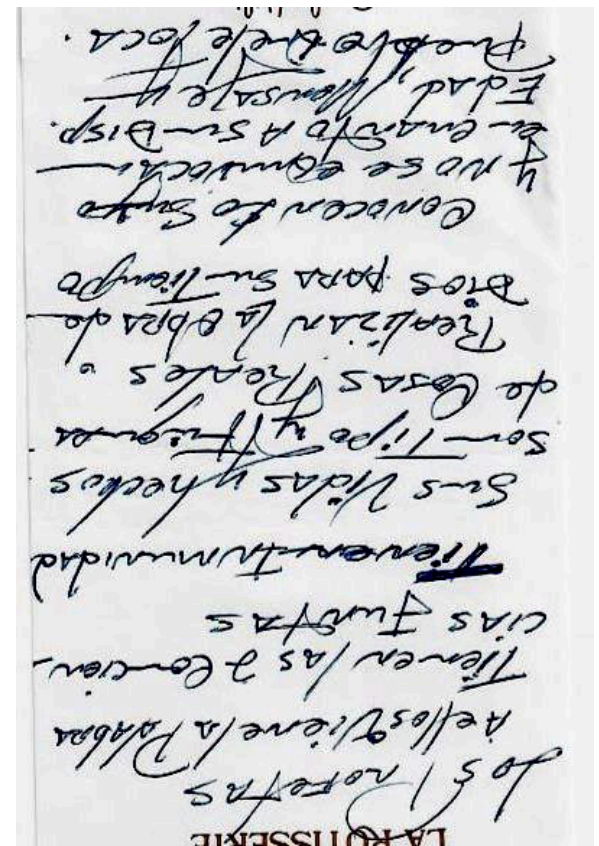 LA ROTISSERIE
Los Profetas
A ellos Viene la Palabra
Tienen las 2 Concien-
cias Juntas
Tienen Inmunidad
Sus Vidas y hechos
son Tipo y Figura
de Cosas Reales.
Realizan la Obra de
Dios para su Tiempo
Conocen lo Suyo
y no se equivocan
en cuanto A su Disp.
Edad, Mensaje y
Pueblo que le toca.